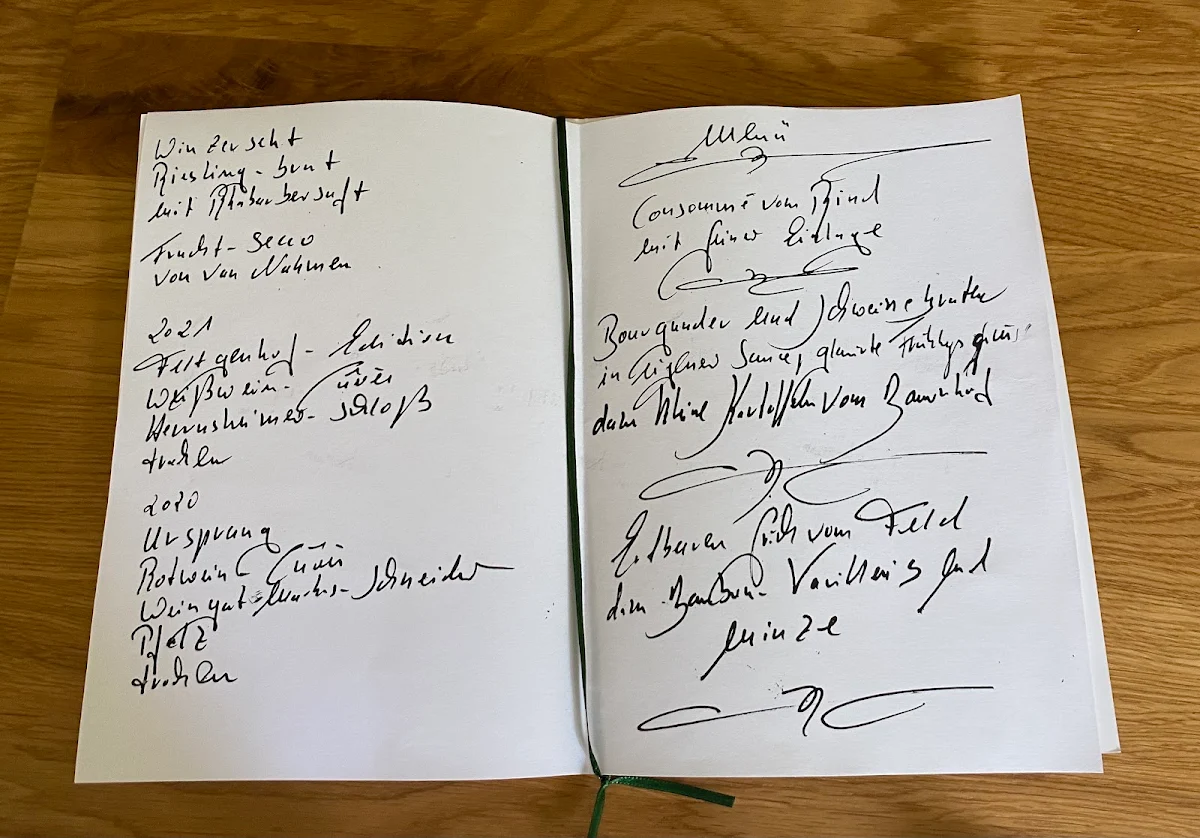 Winzersekt
Riesling-brut
mit Rhabarbersaft
Frucht-Secco
von van Nahmen
2021
Edition
Weißwein Cuvée
Herrnsheimer-Schloß
trocken
2020
Ursprung
Rotwein Cuvée
Weingut Markus-Schneider
Pfalz
trocken
Menü
Consommé vom Rind
mit feiner Einlage
Bourgunder und Schweinebraten
in eigener Sauce, glasierte
dazu kleine Kartoffeln vom Bauernhof
Erdbeeren frisch vom Feld
dazu Bourbon-Vanilleeis und
Minze